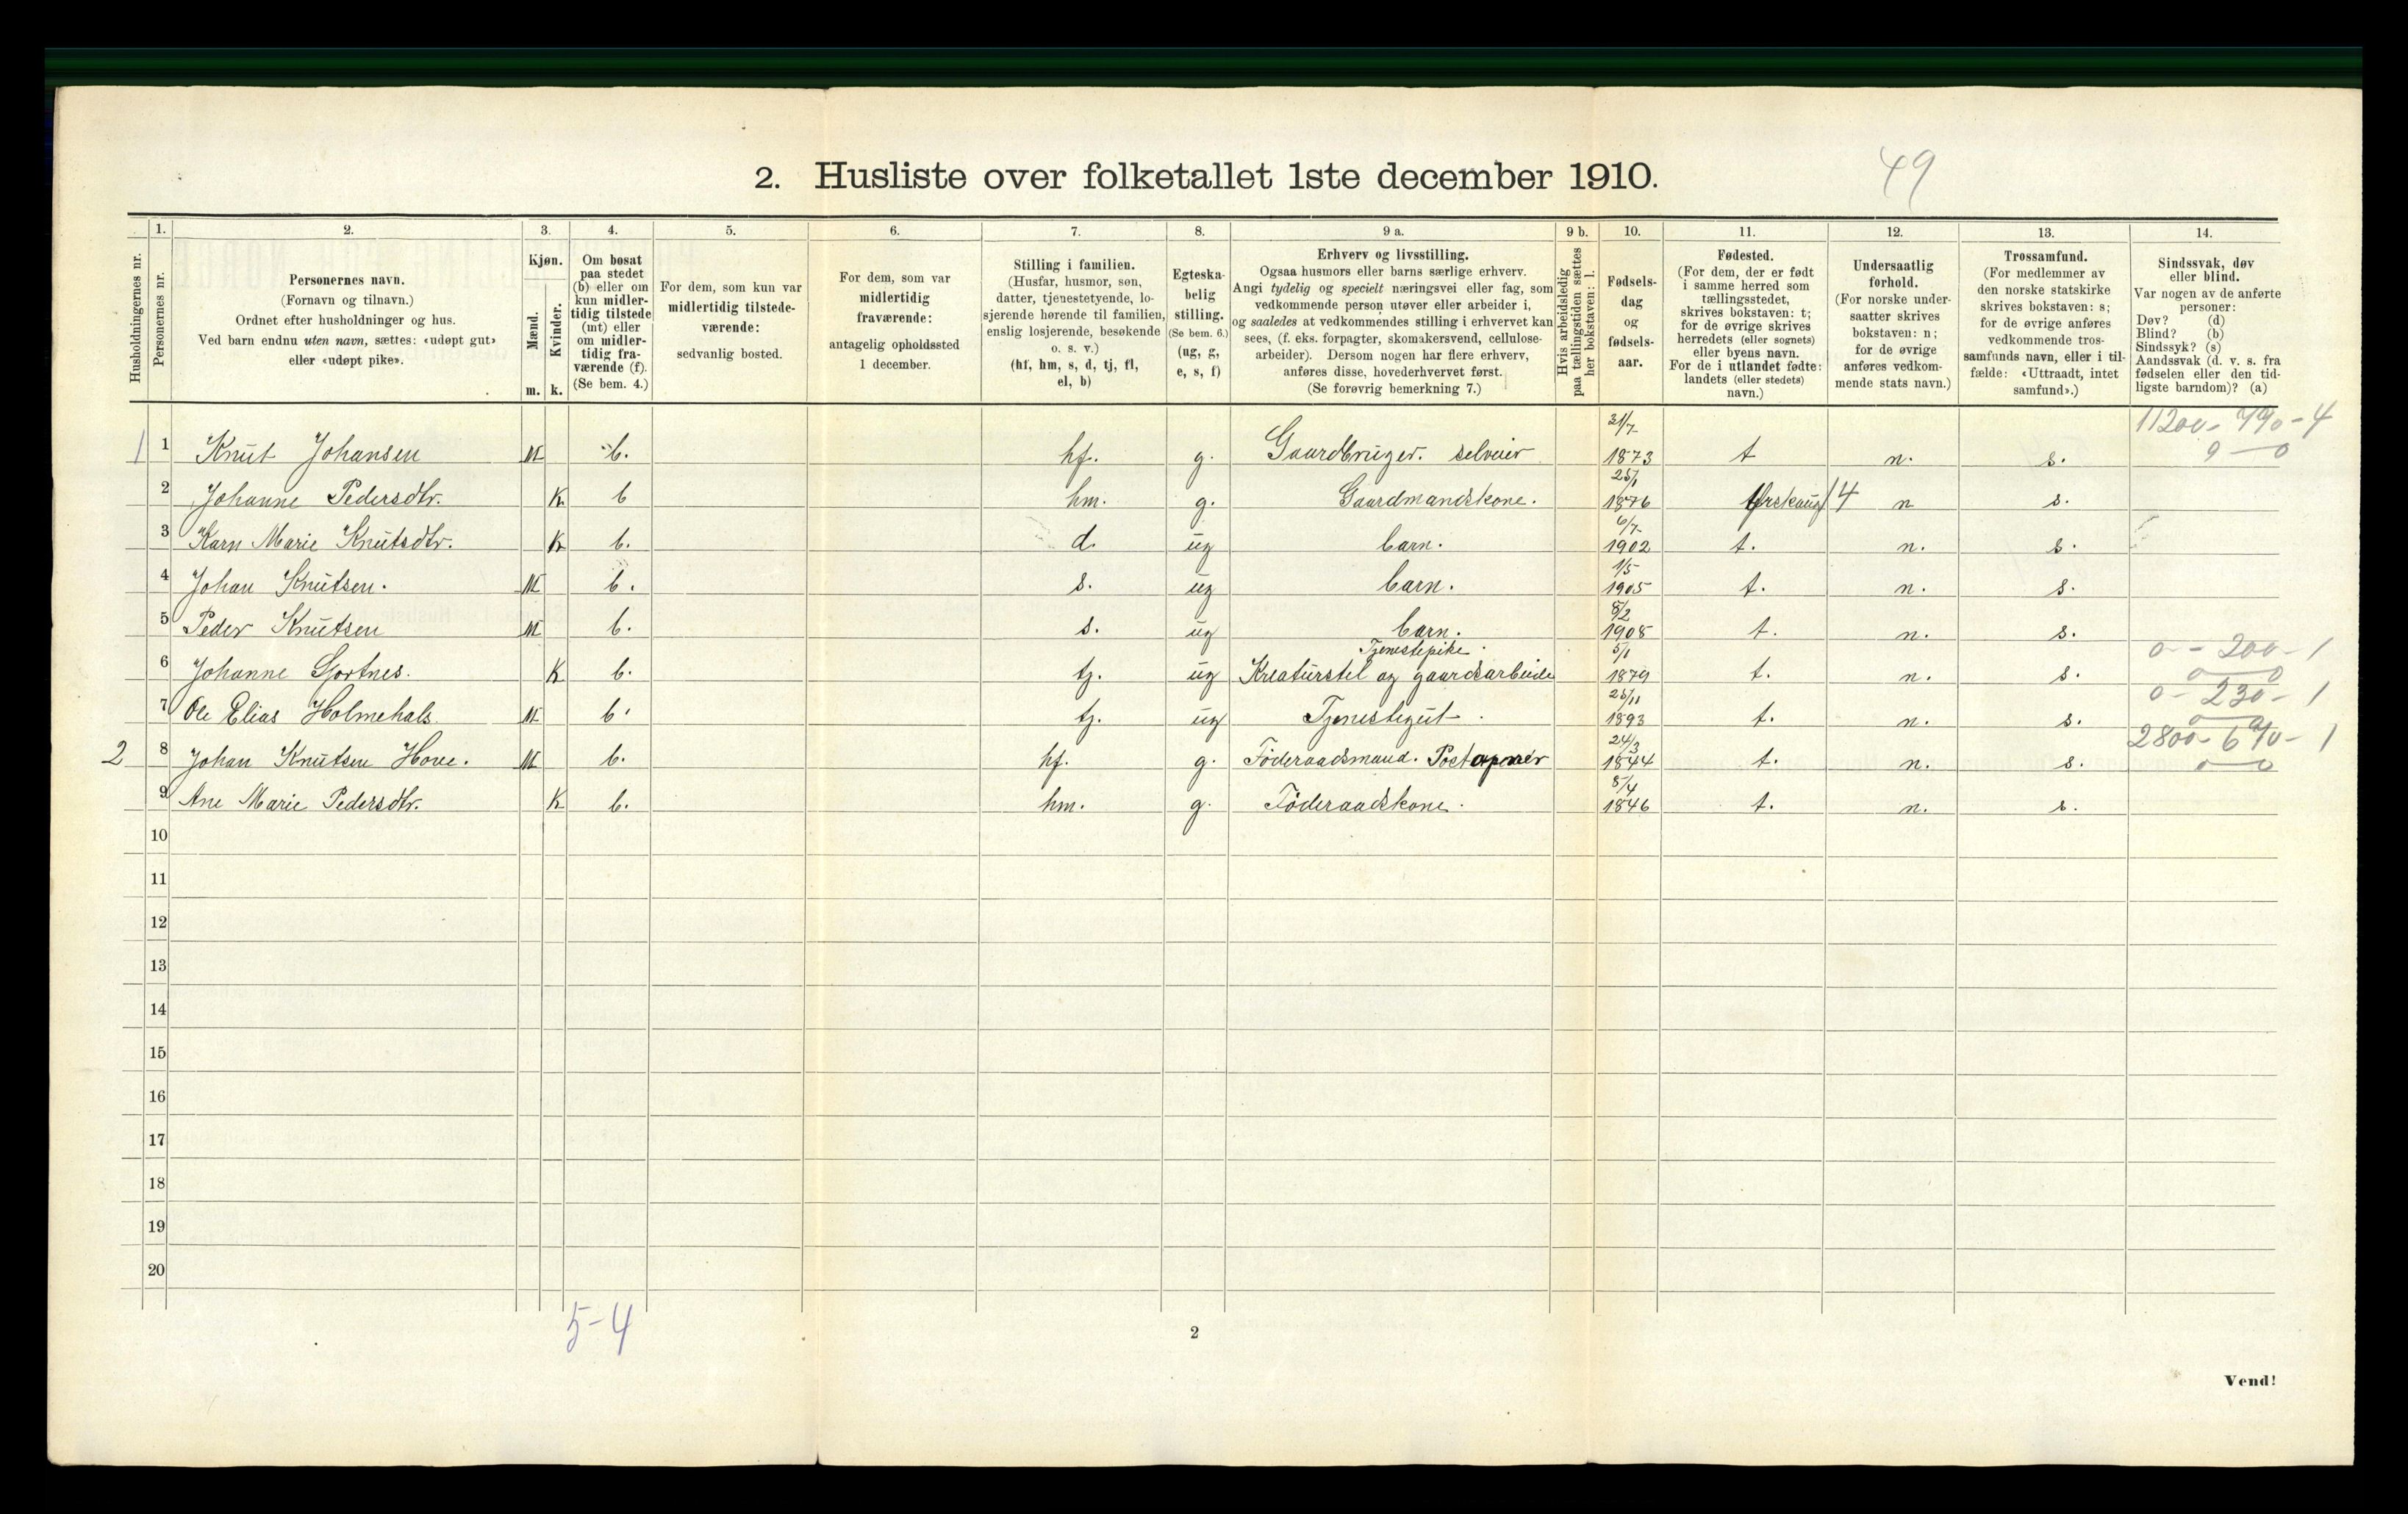 2. Husliste over folketallet 1ste december 1910.
49
Husholdningernes nr.
1.
Personernes nr.
2.
Personernes navn.
(Fornavn og tilnavn.)
Ordnet efter husholdninger og hus.
Ved barn endnu uten navn, sættes: «udøpt gut»
eller «udøpt pike».
3.
Kjøn.
Mænd.
Kvinder.
m. k.
4.
Om bosat
paa stedet
(b) eller om
kun midler-
tidig tilstede
(mt) eller
om midler-
tidig fra-
værende (f).
(Se bem. 4.)
5.
For dem, som kun var
midlertidig tilstede-
værende:
sedvanlig bosted.
6.
For dem, som var
midlertidig
fraværende:
antagelig opholdssted
1 december.
7.
Stilling i familien.
(Husfar, husmor, søn,
datter, tjenestetyende, lo-
sjerende hørende til familien,
enslig losjerende, besøkende
o. s. v.)
(hf, hm, s, d, tj, fl,
el, b)
8.
Egteska-
belig
stilling.
(Se bem. 6.)
(ug, g,
e, s, f)
9 a.
Erhverv og livsstilling.
Ogsaa husmors eller barns særlige erhverv.
Angi tydelig og specielt næringsvei eller fag, som
vedkommende person utøver eller arbeider i,
og saaledes at vedkommendes stilling i erhvervet kan
sees, (f. eks. forpagter, skomakersvend, cellulose-
arbeider). Dersom nogen har flere erhverv,
anføres disse, hovederhvervet først.
(Se forøvrig bemerkning 7.)
9 b.
Hvis arbeidsledig
paa tællingstiden sættes
her bokstaven: l.
10.
Fødsels-
dag
og
fødsels-
aar.
11.
Fødested.
(For dem, der er født
i samme herred som
tællingsstedet,
skrives bokstaven: t;
for de øvrige skrives
herredets (eller sognets)
eller byens navn.
For de i utlandet fødte:
landets (eller stedets)
navn.)
12.
Undersaatlig
forhold.
(For norske under-
saatter skrives
bokstaven: n;
for de øvrige
anføres vedkom-
mende stats navn.)
13.
Trossamfund.
(For medlemmer av
den norske statskirke
skrives bokstaven: s;
for de øvrige anføres
vedkommende tros-
samfunds navn, eller i til-
fælde: «Uttraadt, intet
samfund».)
14.
Sindssvak, døv
eller blind.
Var nogen av de anførte
personer:
Døv? (d)
Blind? (b)
Sindssyk? (s)
Aandssvak (d. v. s. fra
fødselen eller den tid-
ligste barndom)? (a)
1 1 Knut Johansen M b. hf. g. Gaardbruger. selveier 31/7 1873 t n. s. 11200 - 790 - 4
2 Johanne Pedersdtr. K b hm. g. Gaardmandskone. 25/1 1876 Ørskaug 14 n s.
3 Karn Marie Knutsdtr. K b. d. ug barn. 6/7 1902 t. n. s.
4 Johan Knutsen. M b. s. ug barn. 1/5 1905 t. n. s.
5 Peder Knutsen M b. s. ug barn. 8/2 1908 t. n. s.
6 Johanne Gjortnes. K b. tj. ug Tjenestepike. Kreaturstel og gaardsarbeide 5/1 1879 t. n. s. 0 - 200 - 1
7 Ole Elias Holmehals M b. tj. ug Tjenestegut. 25/11 1893 t. n. s. 0 - 230 - 1
2 8 Johan Knutsen Hove. M b. hf. g. Föderaadsmand. Postapner 24/3 1844 t. n. s. 2800 - 690 - 1
9 Ane Marie Pedersdtr. K b. hm. g. Föderaadskone. 8/4 1846 t. n. s.
10
11
12
13
14
15
16
17
18
19
20
5-4
2
Vend!